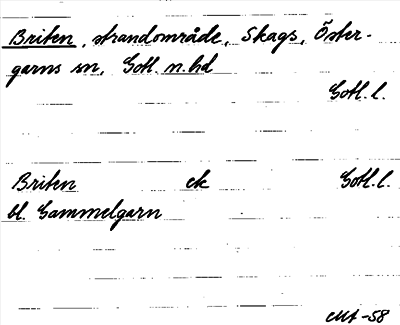 Briten, strandområde, Skags, Öster-
garns sn, Gotl. n. hd
Gotl. l.
Briten ek Gotl. l.
bl. Gammelgarn
MA -58